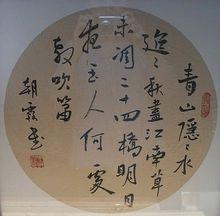 青山隱〻水
迢〻秋盡江南草
未凋二十四橋明月
夜玉人何處
教吹
朝霞